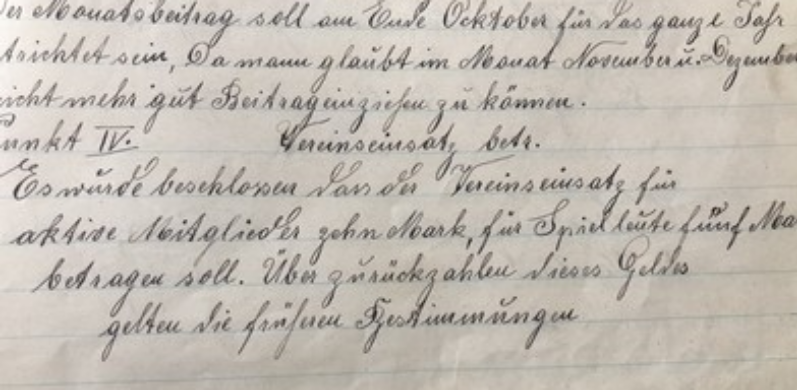 der Monatsbeitrag soll am Ende Ocktober für das ganze Jahr
trichtet sein, Da mann glaubt im Monat November u. Dezember
nicht mehr gut Beitrageinziehen zu können.
Punkt IV. Vereinseinsatz betr.
Es wurde beschlossen das der Vereinseinsatz für
aktive Mitglieder zehn Mark, für Spielleute fünf Ma
betragen soll. Über zurückzahlen dieses Geldes
gelten die früheren Bestimmungen